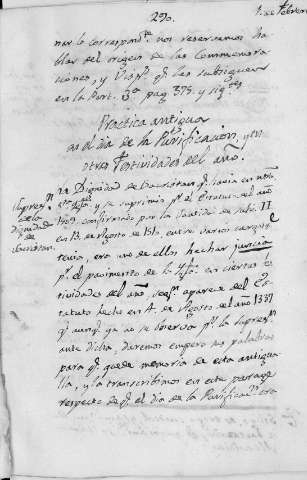 290.
1. de Febrero
nar lo correspond.te nos reservamos ha
blar del origen de las Commemora
ciones, y Visp.s q.e las subsiguen
en la Part. 3.a pag. 375. y sig.tes
Practica antigua
en el dia de la Purificacion, y en
otras festividades del año.
Supres.n
de la
Dignidad
de
Sacristan.
La Dignidad de Sacristan q.e havia en
y se suprimió p.r el Estatuto del año
confirmado por la Santidad de Julio II
en 13. de Agosto de 1510. entre varios cargos q.e
tenia, era uno de ellos hechar juncia
p.r el pavimento de la Igl.a en ciertas fes
tividades del año, seg.n aparece del Es
tatuto hecho en 4. de Agosto del año 1337
q.e aunq.e ya no se observa p.r la supres.n
ante dicha, daremos empero sus palabras
para q.e quede memoria de esta antigua
lla, y la transcribimos en este parage
respecto de q.e el dia de la Purificac.n era